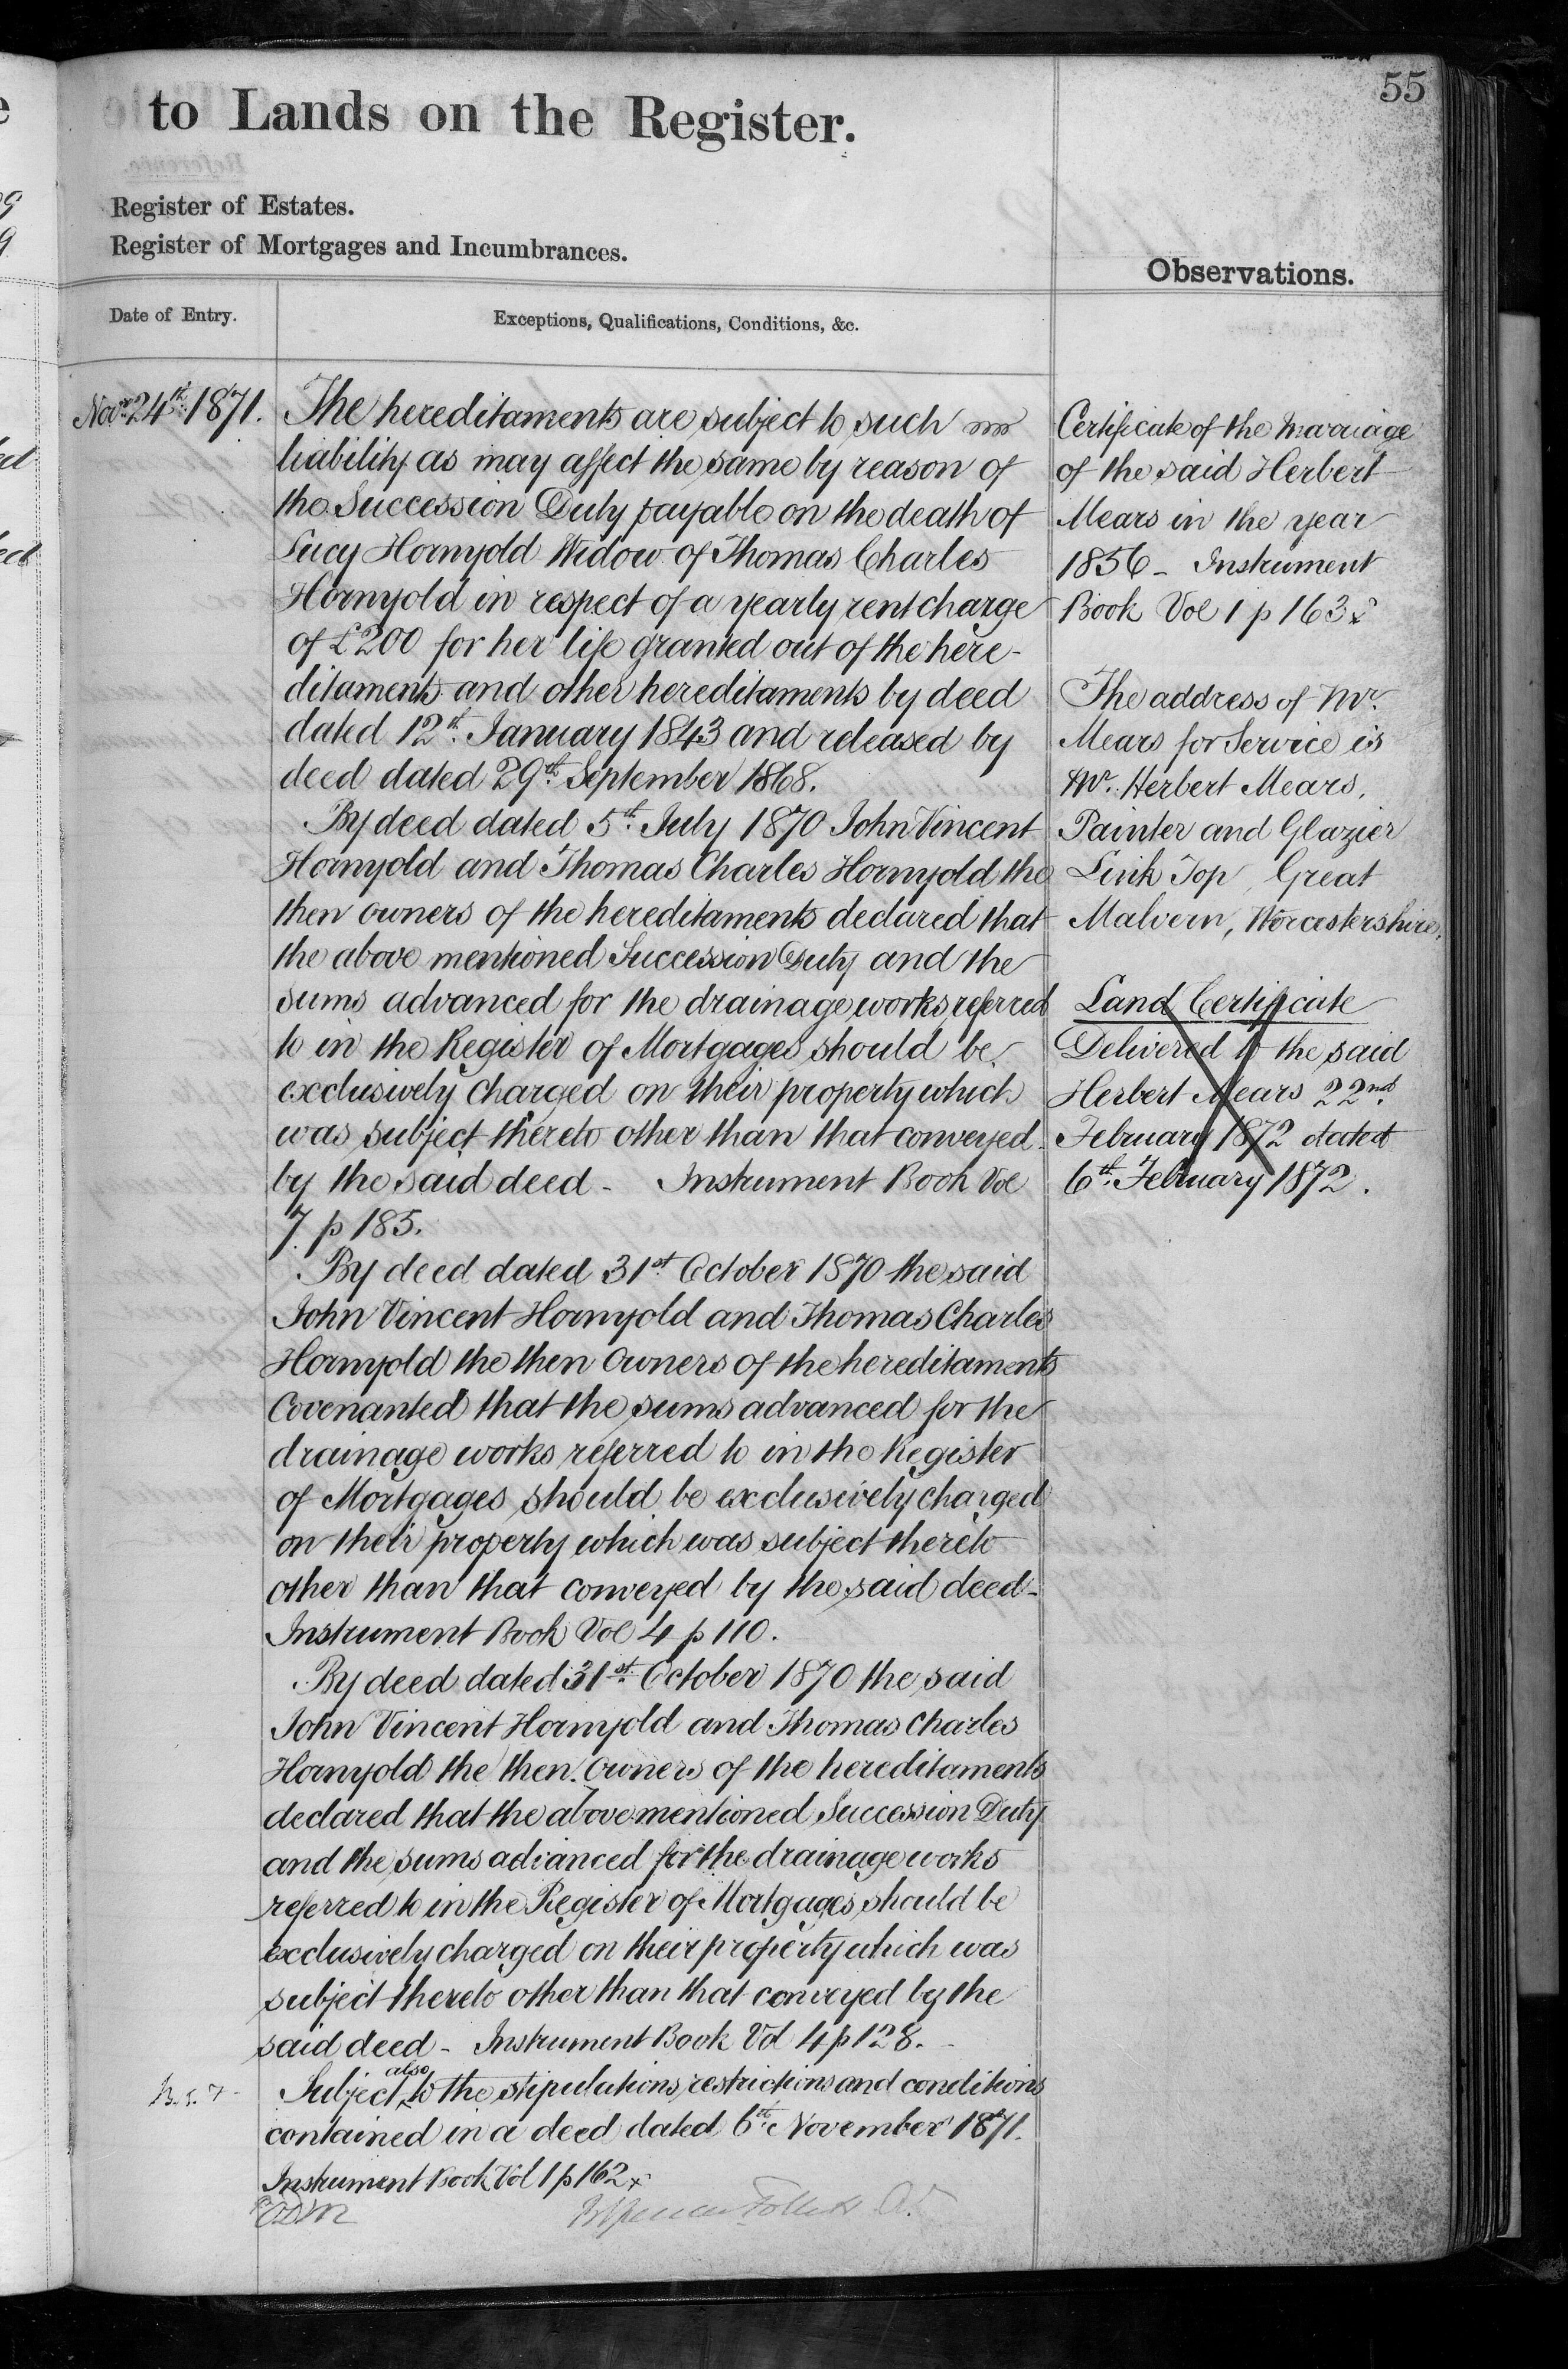 55
to Lands on the Register.
Register of Estates.
Register of Mortgages and Incumbrances.
Observations.
Date of Entry.
Exceptions, Qualifications, Conditions, &c.
Novr. 24th. 1871.
The hereditaments are subject to such
liability as may affect the same by reason of
the Succession Duty payable on the death of
Lucy Hornyold Widow of Thomas Charles
Hornyold in respect of a yearly rent charge
of £200 for her life granted out of the here-
ditaments and other hereditaments by deed
dated 12th. January 1843 and released by
deed dated 29th. September 1868.
By deed dated 5th. July 1870 John Vincent
Hornyold and Thomas Charles Hornyold the
then owners of the hereditaments declared that
the above mentioned Succession Duty and the
sums advanced for the drainage works referred
to in the Register of Mortgages should be
exclusively charged on their property which
was subject thereto other than that conveyed
by the said deed - Instrument Book Vol
7. p 185.
By deed dated 31st. October 1870 the said
John Vincent Hornyold and Thomas Charles
Hornyold the then Owners of the hereditaments
Covenanted that the sums advanced for the
drainage works referred to in the Register
of Mortgages should be exclusively charged
on their property which was subject thereto
other than that conveyed by the said deed -
Instrument Book Vol 4 p 110.
By deed dated 31st. October 1870 the said
John Vincent Hornyold and Thomas Charles
Hornyold the then Owners of the hereditaments
declared that the above mentioned Succession Duty
and the sums advanced for the drainage works
referred to in the Register of Mortgages should be
exclusively charged on their property which was
subject thereto other than that conveyed by the
said deed - Instrument Book Vol 4 p 128. -
Subject also to the stipulations, restrictions and conditions
contained in a deed dated 6th. November 1871.
Instrument Book Vol 1 p 162 x
Certificate of the Marriage
of the said Herbert
Mears in the year
1856 - Instrument
Book Vol 1 p 163 x
The address of Mr.
Mears for Service is
Mr. Herbert Mears,
Painter and Glazier
Link Top, Great
Malvern, Worcestershire.
Land Certificate
Delivered to the said
Herbert Mears 22nd.
February 1872 dated
6th. February 1872.